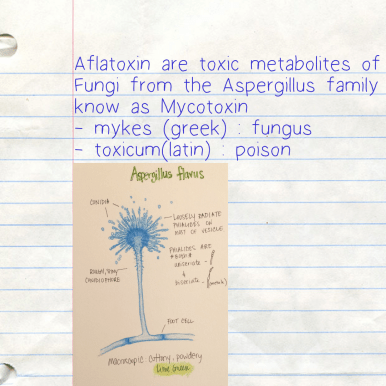 Aflatoxin are toxic metabolites of
Fungi from the Aspergillus family
know as Mycotoxin
- mykes (greek) : fungus
- toxicum(latin) : poison
Aspergillus flavus
CONIDIA
LOOSELY RADIATE
PHIALIDES ON
MOST OF VESICLE.
PHIALIDES ARE
uniseriate -
&
biseriate -
CONIDIOPHORE
FOOT CELL
Macroscopic: cottony, powdery
Lime Green